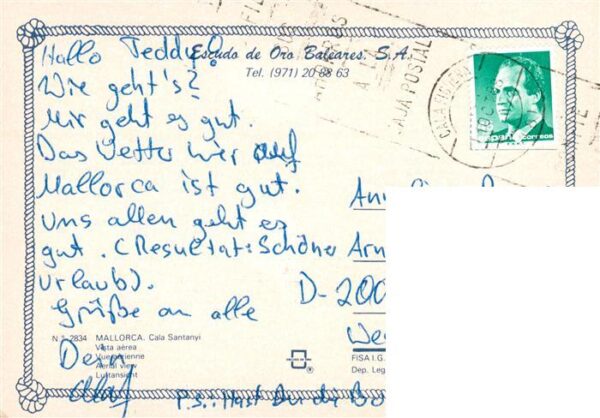 Escudo de Oro Baleares, S.A.
Tel. (971) 20 88 63
CAJA POSTAL
Hallo Teddy!
Wie geht's?
Mir geht es gut.
Das Wetter hier auf
Mallorca ist gut.
Uns allen geht es
gut. (Resultat: Schöner
Urlaub).
Grüße an alle
Dein
Olaf
P.S.: Hast Du die
D-200
N.º 2834 MALLORCA. Cala Santanyi
Vista aérea
Vue aérienne
Aerial view
Luftansicht
FISA I.G.
Dep. Leg